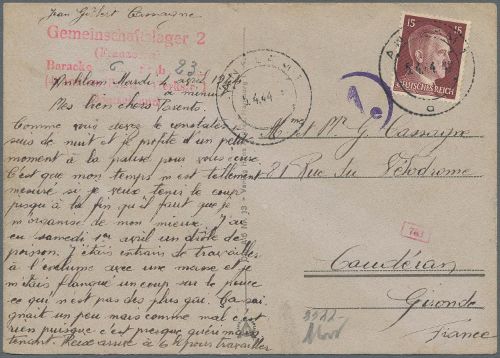 Jean Gilbert Cassaigne
Gemeinschaftslager 2
Baracke 6 23
Anklam Mardi 4 avril 1944
à minuit
Mes bien chers Parents.
Comme vous devez le constater je
suis de nuit et je profite d'un petit
moment à la pause pour vous écrire.
C'est que mon temps m'est tellement
mesuré si je veux tenir le coup
jusqu'à la fin qu'il faut que je
m'organise de mon mieux. J'ai
eu samedi 1er avril un drôle de
poisson. J'étais entrain de travailler
à l'enclume avec une masse et je
m'étais flanqué un coup sur le pouce
ce qui n'est pas des plus gai. Ça sai-
gnait un peu mais comme mal c'est
rien puisque c'est presque guéri main-
tenant. Réussi à 6h pour travailler
15 15
DEUTSCHES REICH
5.4.44
Ae
Mme et Mr G. Cassaigne
21 Rue du Vélodrome
763
Caudéran
Gironde
France